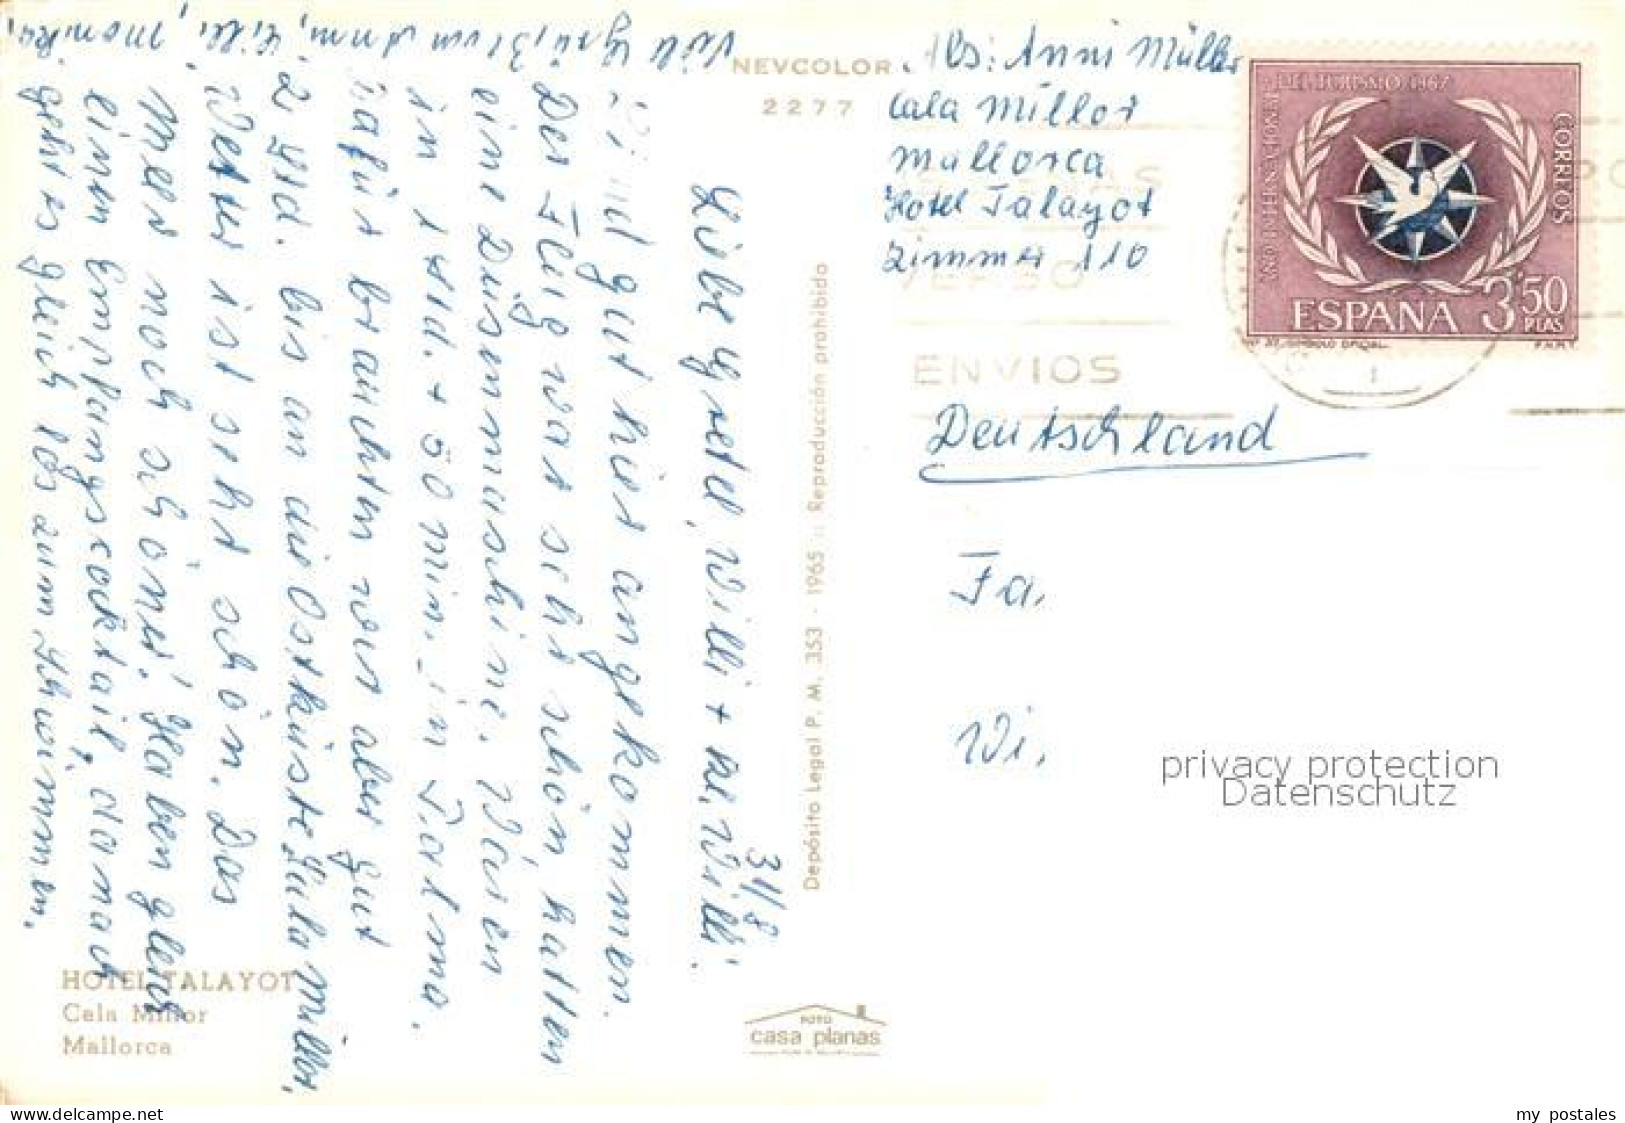 NEVCOLOR
2277
Abs: Anni Müller
Cala Millor
Mallorca
Hotel Talayot
Zimmer 110
AÑO INTERNACIONAL DEL TURISMO, 1967
CORREOS
ESPAÑA 3'50
PTAS
F.N.M.T.
ENVIOS
Deutschland
Fa.
Wi.
31/8
Liebe Gretel, Willi + kl. Willi.
Sind gut hier angekommen.
Der Flug war sehr schön, hatten
eine Düsenmaschine. Waren
in 1 Std. + 50 min. in Palma.
Dafür brauchten wir aber gut
2 Std. bis an die Ostküste Cala Millor.
Wetter ist sehr schön. Das
Meer noch schöner. Haben gleich
einen Empfangscocktail, danach
geht es gleich los zum Schwimmen.
Viele Grüße von Anni, Willi, Monika.
Depósito Legal P. M. 353 - 1965 :: Reproducción prohibida
HOTEL TALAYOT
Cala Millor
Mallorca
FOTO
casa planas
privacy protection
Datenschutz
www.delcampe.net
my_postales